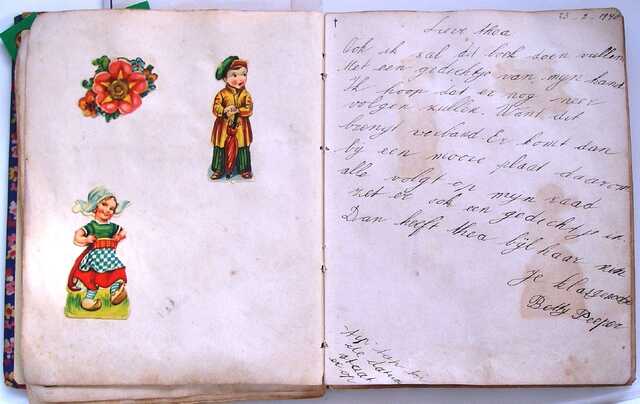 23-2-1940
Lieve Thea
Ook ik sal dit boek doen vullen
Met een gedichtje van mijn hand
Ik hoop dat er nog meer
volgen zullen. Want dit
brengt verband Er komt dan
bij een mooie plaat daarom
alle volgt op mijn raad
zet er ook een gedichtje in.
Dan heeft Thea bijl haar zin
je klasgenoote
Betty Peeper
tip tap top
de datum
staat
op